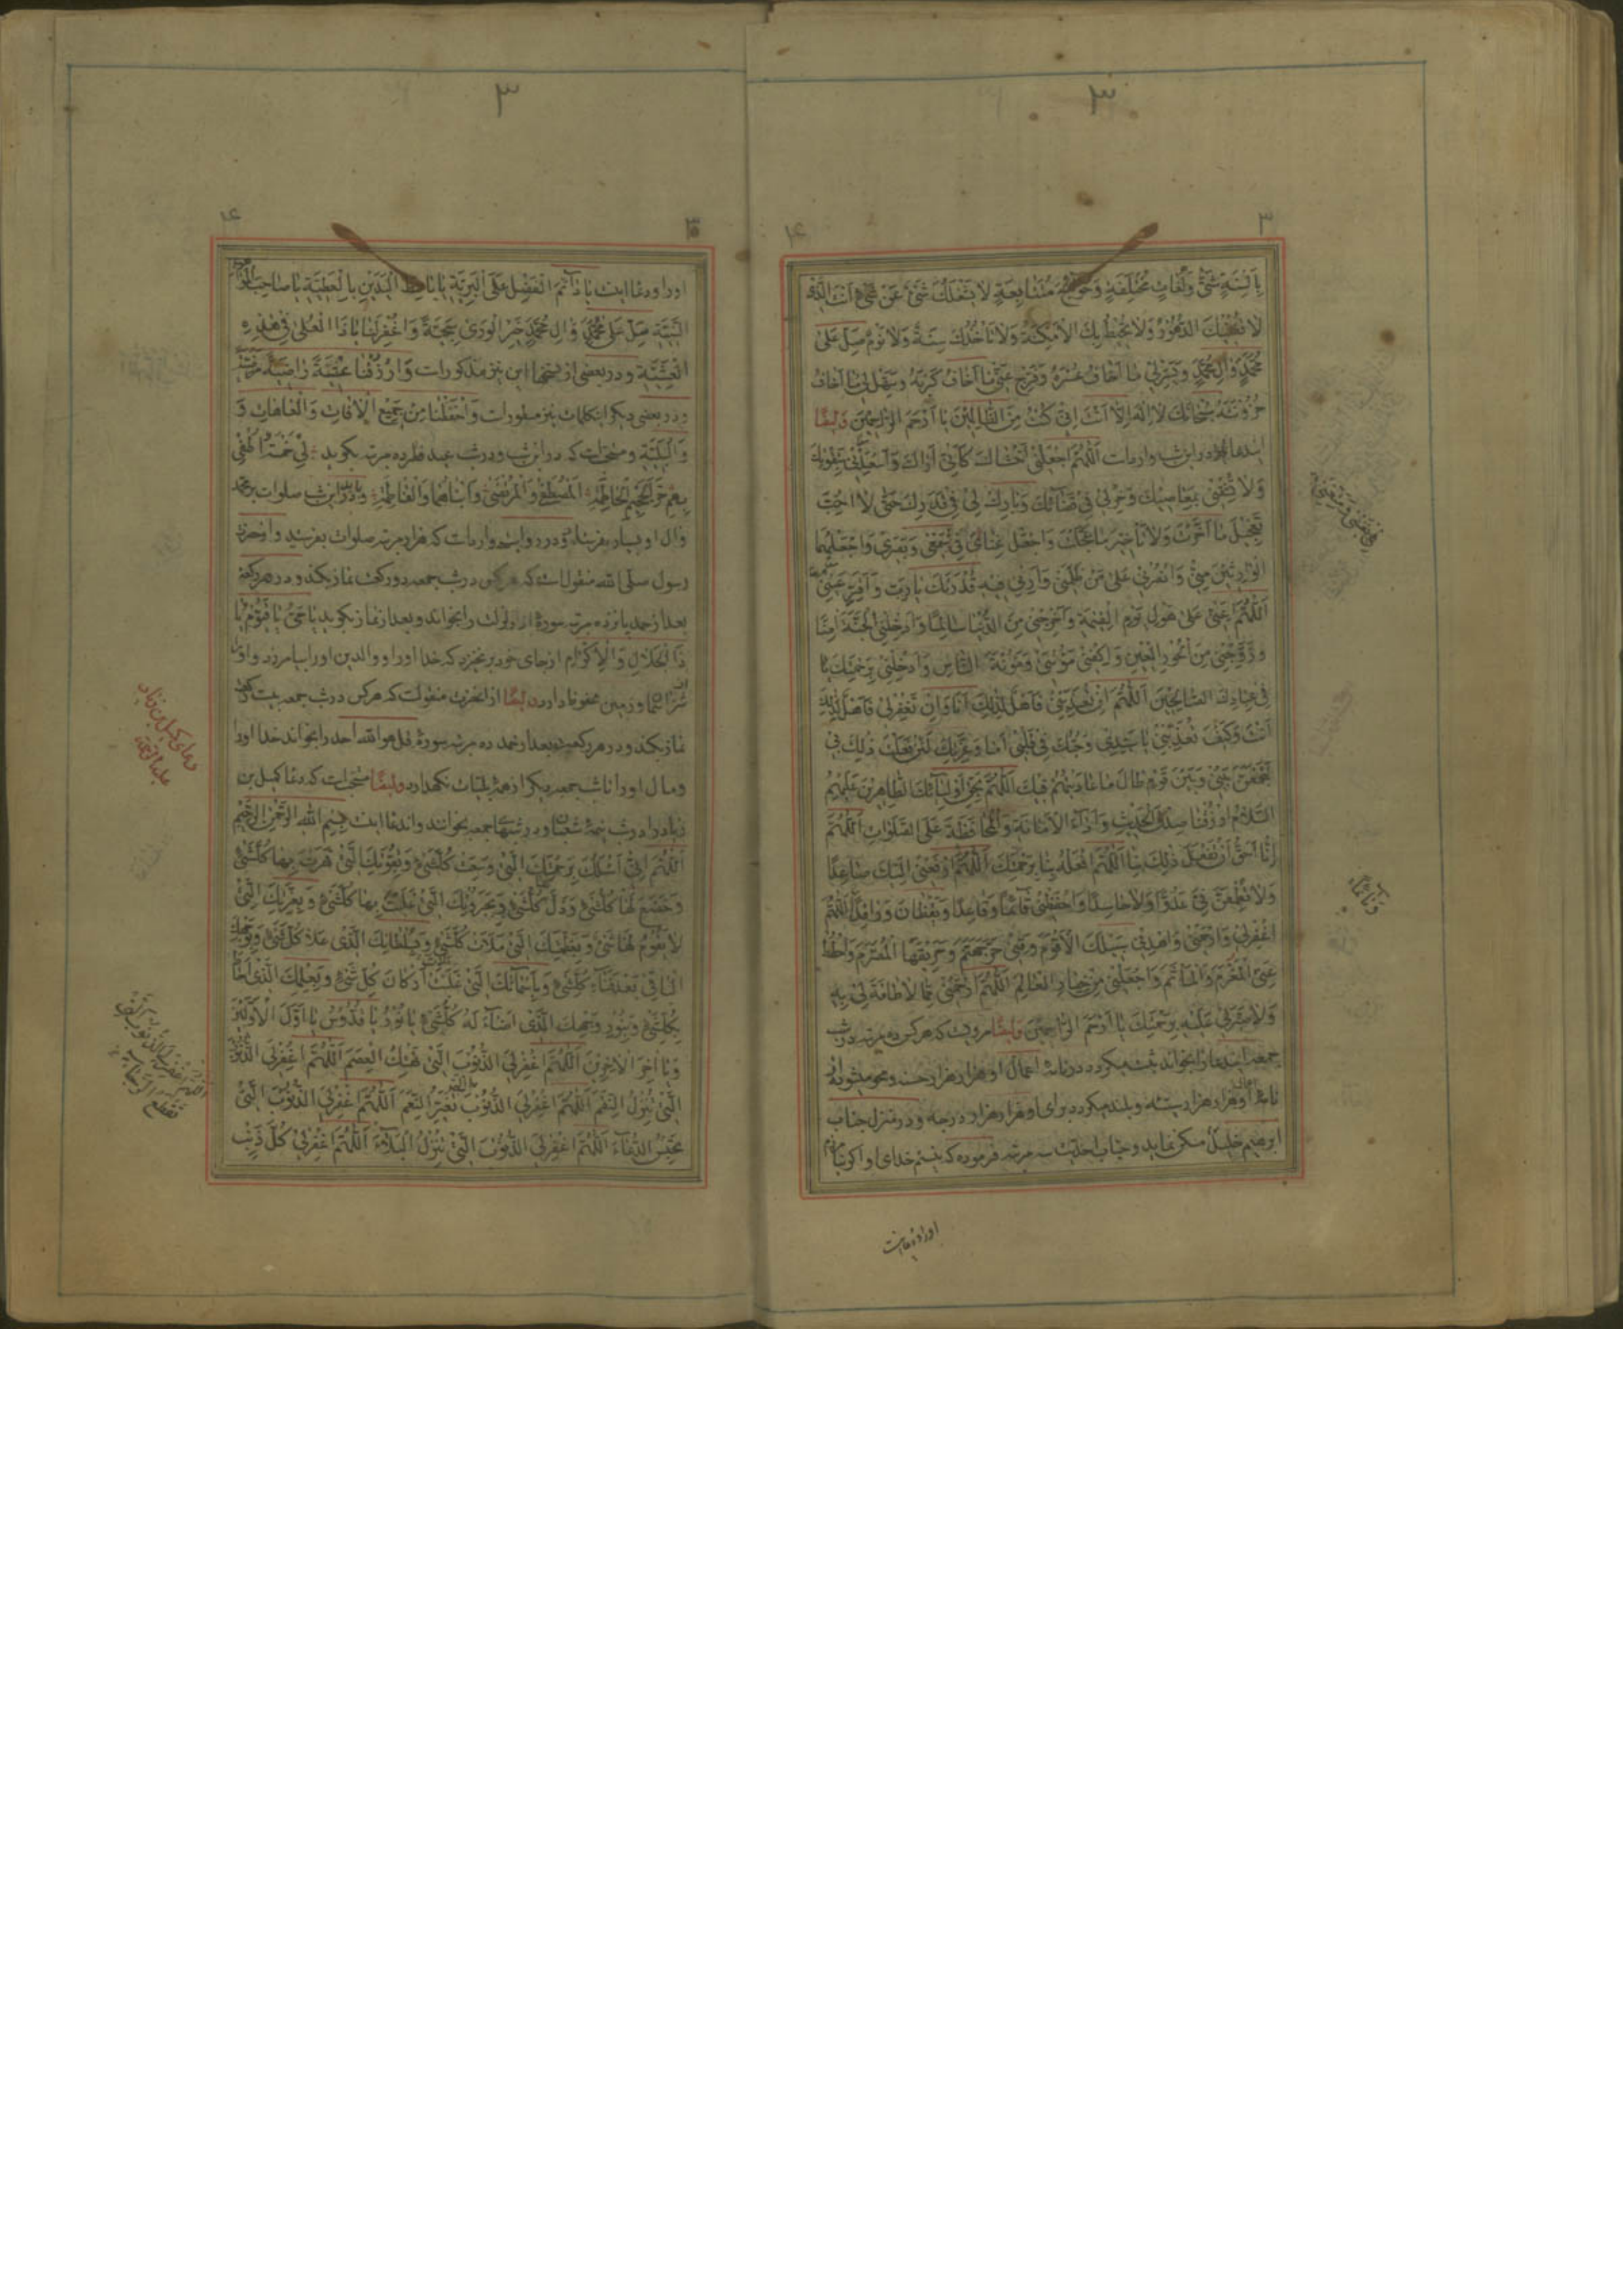 ۳
۳
۴
بِأَلْسِنَةٍ شَتّٰى وَلُغَاتٍ مُخْتَلِفَةٍ وَحَوَائِجَ مُتَتَابِعَةٍ لَا يَشْغَلُكَ شَیْءٌ عَنْ شَیْءٍ اَنْتَ الَّذِی
لَا تُفْنِيكَ الدُّهُورُ وَلَا تُحِيطُ بِكَ الْاَمْكِنَةُ وَلَا تَأْخُذُكَ سِنَةٌ وَلَا نَوْمٌ صَلِّ عَلٰى
مُحَمَّدٍ وَآلِ مُحَمَّدٍ وَيَسِّرْ لِی مَا اَخَافُ عُسْرَهُ وَفَرِّجْ عَنِّی مَا اَخَافُ كَرْبَهُ وَسَهِّلْ لِی مَا اَخَافُ
حُزُونَتَهُ سُبْحَانَكَ لَا اِلٰهَ اِلَّا اَنْتَ اِنِّی كُنْتُ مِنَ الظَّالِمِينَ يَا اَرْحَمَ الرَّاحِمِينَ وَايضًا
ايندعا در اين شب وارد است اَللّٰهُمَّ اجْعَلْنِی اَخْشَاكَ كَاَنِّی اَرَاكَ وَاَسْعِدْنِی بِتَقْوٰيكَ
وَلَا تُشْقِنِی بِمَعَاصِيكَ وَخِرْ لِی فِی قَضَائِكَ وَبَارِكْ لِی فِی قَدَرِكَ حَتّٰى لَا اُحِبَّ
تَعْجِيلَ مَا اَخَّرْتَ وَلَا تَأْخِيرَ مَا عَجَّلْتَ وَاجْعَلْ غِنَائِی فِی نَفْسِی وَبَصَرِی وَاجْعَلْهُمَا
الْوَارِثَيْنِ مِنِّی وَانْصُرْنِی عَلٰى مَنْ ظَلَمَنِی وَاَرِنِی فِيهِ قُدْرَتَكَ يَا رَبِّ وَاَقِرَّ عَيْنِی
اَللّٰهُمَّ اَعِنِّی عَلٰى هَوْلِ يَوْمِ الْقِيٰمَةِ وَاَخْرِجْنِی مِنَ الدُّنْيَا سَالِمًا وَاَدْخِلْنِی الْجَنَّةَ آمِنًا
وَزَوِّجْنِی مِنَ الْحُورِ الْعِينِ وَاكْفِنِی مَؤُنَتِی وَمَؤُنَةَ النَّاسِ وَاَدْخِلْنِی بِرَحْمَتِكَ
فِی عِبَادِكَ الصَّالِحِينَ اَللّٰهُمَّ اِنْ تُعَذِّبْنِی فَاَهْلٌ لِذٰلِكَ اَنَا وَاِنْ تَغْفِرْ لِی فَاَهْلٌ لِذٰلِكَ
اَنْتَ وَكَيْفَ تُعَذِّبُنِی يَا سَيِّدِی وَحُبُّكَ فِی قَلْبِی اَمَا وَعِزَّتِكَ لَئِنْ فَعَلْتَ ذٰلِكَ بِی
لَتَجْمَعَنَّ بَيْنِی وَبَيْنَ قَوْمٍ طَالَ مَا عَادَيْتُهُمْ فِيكَ اَللّٰهُمَّ بِحَقِّ اَوْلِيَائِكَ الطَّاهِرِينَ عَلَيْهِمُ
السَّلَامُ ارْزُقْنَا صِدْقَ الْحَدِيثِ وَاَدَاءَ الْاَمَانَةِ وَالْمُحَافَظَةَ عَلَى الصَّلَوَاتِ اَللّٰهُمَّ
اِنَّا اَحَقُّ اَنْ تَفْعَلَ ذٰلِكَ بِنَا اَللّٰهُمَّ افْعَلْهُ بِنَا بِرَحْمَتِكَ اَللّٰهُمَّ ارْفَعْنِی اِلَيْكَ صَاعِدًا
وَلَا تُطْمِعَنَّ فِیَّ عَدُوًّا وَلَا حَاسِدًا وَاحْفَظْنِی قَائِمًا وَقَاعِدًا وَيَقْظَانَ وَرَاقِدًا اَللّٰهُمَّ
اغْفِرْ لِی وَارْحَمْنِی وَاهْدِنِی سَبِيلَكَ الْاَقْوَمَ وَقِنِی حَرَّ جَهَنَّمَ وَحَرِيقَهَا الْمُضْرَمَ وَاحْطُطْ
عَنِّی الْمَغْرَمَ وَالْمَأْثَمَ وَاجْعَلْنِی مِنْ خِيَارِ الْعَالَمِ اَللّٰهُمَّ ارْحَمْنِی مِمَّا لَا طَاقَةَ لِی بِهِ
وَلَا صَبْرَ لِی عَلَيْهِ بِرَحْمَتِكَ يَا اَرْحَمَ الرَّاحِمِينَ وَايضًا مرويست كه هركس ده مرتبه در شب
جمعه ايندعا را بخواند ثبت ميكردد در نامهٔ اعمال او هزار هزار حسنه و محو ميشود از
نامهٔ او هزار هزار سيئه و بلند ميكردد براى او هزار هزار درجه و در منزل جناب
ابرهيم خليل مسكن نمايد و جناب احديت سه مرتبه فرموده كه نيستم خداى او اكر نيامرزم
وَنَاعِمًا
اورا و دعا اينست
۳
۴
اورا و دعا اينست يَا دَائِمَ الْفَضْلِ عَلَى الْبَرِيَّةِ يَا بَاسِطَ الْيَدَيْنِ بِالْعَطِيَّةِ يَا صَاحِبَ الْمَوَاهِبِ
السَّنِيَّةِ صَلِّ عَلٰى مُحَمَّدٍ وَآلِ مُحَمَّدٍ خَيْرِ الْوَرٰى سَجِيَّةً وَاغْفِرْ لَنَا يَا ذَا الْعُلٰى فِی هٰذِهِ
الْعَشِيَّةِ و در بعضى از نسخ اين نيز مذكور است وَارْزُقْنَا عِيشَةً رَاضِيَةً مَرْضِيَّةً
و در بعضى ديكر اينكلمات نيز مسطور است وَاحْفَظْنَا مِنْ جَمِيعِ الْآفَاتِ وَالْعَاهَاتِ وَ
وَالْبَلِيَّةِ و مستحب است كه در اين شب و در شب عيد فطر ده مرتبه بكويد لِی خَمْسَةٌ اُطْفِی
بِهِمْ حَرَّ الْجَحِيمِ الْحَاطِمَةِ الْمُصْطَفٰى وَالْمُرْتَضٰى وَابْنَاهُمَا وَالْفَاطِمَةُ و بايد در اين شب صلوات بر محمد
و آل او بسيار بفرستند و در روايت وارد است كه هزار مرتبه صلوات بفرستيد و از حضرت
رسول صلى الله منقولست كه هر كس در شب جمعه دو ركعت نماز بكند و در هر ركعت
بعد از حمد يانزده مرتبه سورهٔ اذا زلزلت را بخواند و بعد از نماز بكويد يَا حَیُّ يَا قَيُّومُ يَا
ذَا الْجَلَالِ وَالْاِكْرَامِ از جاى خود برنخيزد كه خدا او را و والدين او را بيامرزد و او را
از شر آسمان و زمين محفوظ دارد وايضًا از آنحضرت منقولست كه هركس در شب جمعه بيست ركعت
نماز بكند و در هر ركعت بعد از حمد ده مرتبه سورهٔ قل هو الله احد را بخواند خدا او را
و مال او را تا شب جمعه ديكر از همه بليات نكهدارد وايضًا مستحب است كه دعا كميل بن
زياد را در شب نيمهٔ شعبان و در شبهاى جمعه بخوانند و ايندعا اينست بِسْمِ اللّٰهِ الرَّحْمٰنِ الرَّحِيمِ
اَللّٰهُمَّ اِنِّی اَسْئَلُكَ بِرَحْمَتِكَ الَّتِی وَسِعَتْ كُلَّ شَیْءٍ وَبِقُوَّتِكَ الَّتِی قَهَرْتَ بِهَا كُلَّ شَیْءٍ
وَخَضَعَ لَهَا كُلُّ شَیْءٍ وَذَلَّ لَهَا كُلُّ شَیْءٍ وَبِجَبَرُوتِكَ الَّتِی غَلَبْتَ بِهَا كُلَّ شَیْءٍ وَبِعِزَّتِكَ الَّتِی
لَا يَقُومُ لَهَا شَیْءٌ وَبِعَظَمَتِكَ الَّتِی مَلَأَتْ كُلَّ شَیْءٍ وَبِسُلْطَانِكَ الَّذِی عَلَا كُلَّ شَیْءٍ وَبِوَجْهِكَ
الْبَاقِی بَعْدَ فَنَاءِ كُلِّ شَیْءٍ وَبِاَسْمَائِكَ الَّتِی غَلَبَتْ اَرْكَانَ كُلِّ شَیْءٍ وَبِعِلْمِكَ الَّذِی اَحَاطَ
بِكُلِّ شَیْءٍ وَبِنُورِ وَجْهِكَ الَّذِی اَضَاءَ لَهُ كُلُّ شَیْءٍ يَا نُورُ يَا قُدُّوسُ يَا اَوَّلَ الْاَوَّلِينَ
وَيَا آخِرَ الْآخِرِينَ اَللّٰهُمَّ اغْفِرْ لِیَ الذُّنُوبَ الَّتِی تَهْتِكُ الْعِصَمَ اَللّٰهُمَّ اغْفِرْ لِیَ الذُّنُوبَ
الَّتِی تُنْزِلُ النِّقَمَ اَللّٰهُمَّ اغْفِرْ لِیَ الذُّنُوبَ الَّتِی تُغَيِّرُ النِّعَمَ اَللّٰهُمَّ اغْفِرْ لِیَ الذُّنُوبَ الَّتِی
تَحْبِسُ الدُّعَاءَ اَللّٰهُمَّ اغْفِرْ لِیَ الذُّنُوبَ الَّتِی تُنْزِلُ الْبَلَاءَ اَللّٰهُمَّ اغْفِرْ لِی كُلَّ ذَنْبٍ
دعاى كميل بن زياد
عليه الرحمة
اَللّٰهُمَّ اغْفِرْ لِیَ الذُّنُوبَ الَّتِی
تَقْطَعُ الرَّجَاءَ